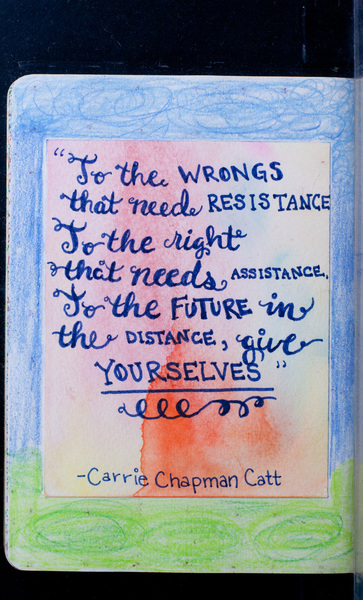 “To the WRONGS
that need RESISTANCE
To the right
that needs ASSISTANCE,
To the FUTURE in
the DISTANCE, give
YOURSELVES”
-Carrie Chapman Catt